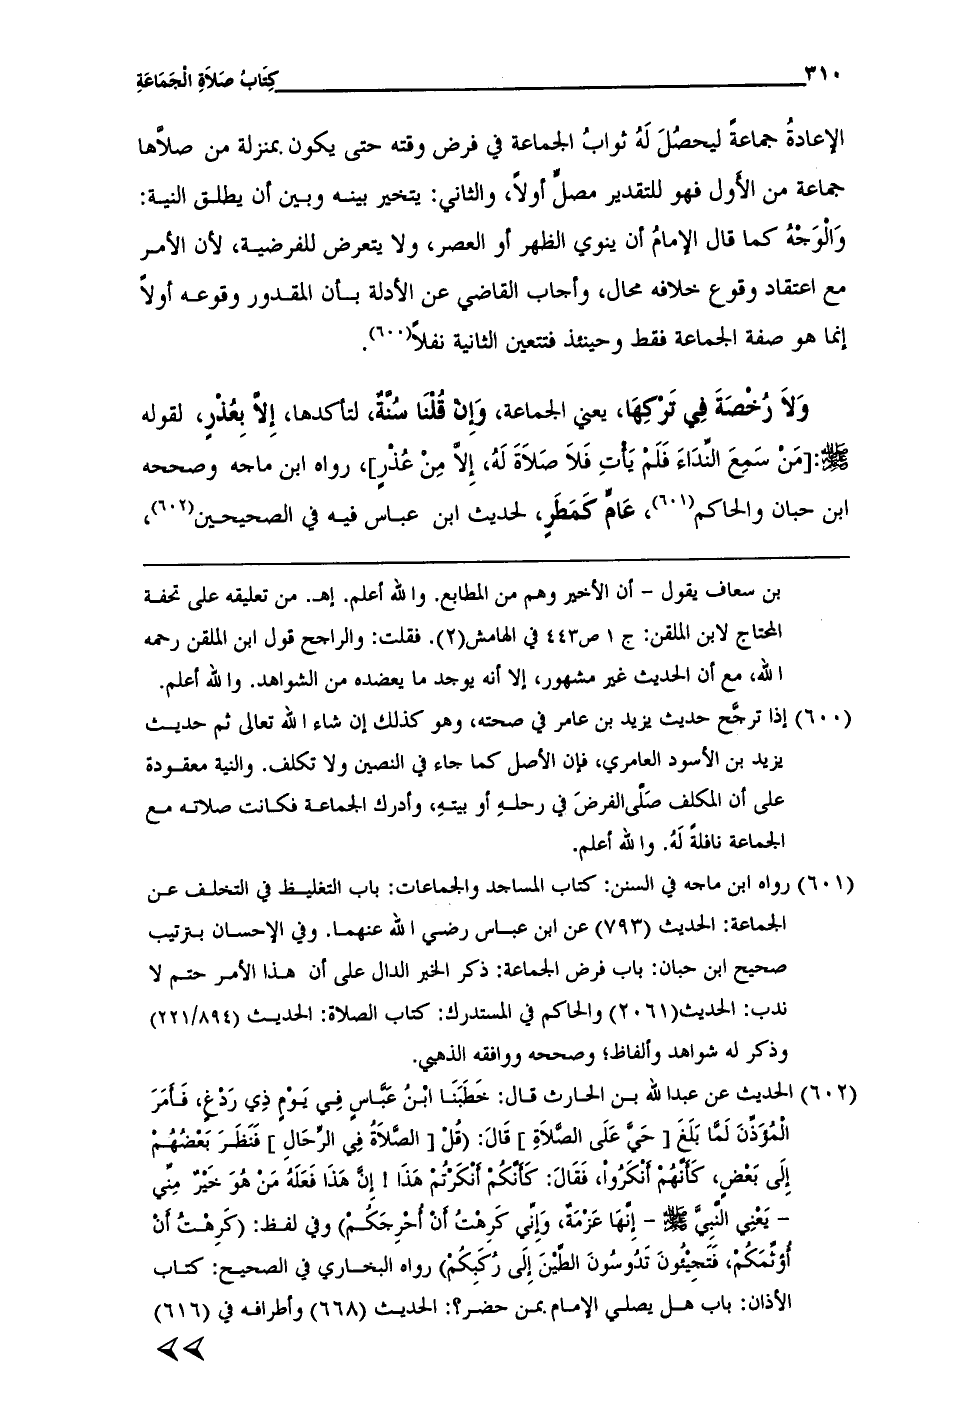 ٣١٠ كِتَابُ صَلاَةِ الْجَمَاعَةِ
الإعادةُ جماعةً ليحصُلَ لَهُ ثوابُ الجماعة في فرض وقته حتى يكون بمنزلة من صلاَّها
جماعة من الأَول فهو للتقدير مصلٍّ أولاً، والثاني: يتخير بينه وبين أن يطلق النية:
وَالْوَجْهُ كما قال الإمامُ أن ينوي الظهر أو العصر، ولا يتعرض للفرضية، لأن الأمر
مع اعتقاد وقوع خلافه محال، وأجاب القاضي عن الأدلة بأن المقدور وقوعه أولاً
إنما هو صفة الجماعة فقط وحينئذ فتتعين الثانية نفلاً(٦٠٠).
وَلاَ رُخْصَةَ فِي تَرْكِهَا، يعني الجماعة، وَإِنْ قُلْنَا سُنَّةٌ، لتأكدها، إِلاَّ بِعُذْرٍ، لقوله
ﷺ:[مَنْ سَمِعَ النِّدَاءَ فَلَمْ يَأْتِ فَلاَ صَلاَةَ لَهُ، إِلاَّ مِنْ عُذْرٍ]، رواه ابن ماجه وصححه
ابن حبان والحاكم(٦٠١)، عَامٌّ كَمَطَرٍ، لحديث ابن عباس فيه في الصحيحين(٦٠٢)،
بن سعاف يقول – أن الأخير وهم من المطابع. والله أعلم. إهـ. من تعليقه على تحفة
المحتاج لابن الملقن: ج ١ ص٤٤٣ في الهامش(٢). فقلت: والراجح قول ابن الملقن رحمه
الله، مع أن الحديث غير مشهور، إلا أنه يوجد ما يعضده من الشواهد. والله أعلم.
(٦٠٠) إذا ترجَّح حديث يزيد بن عامر في صحته، وهو كذلك إن شاء الله تعالى ثم حديث
يزيد بن الأسود العامري، فإن الأصل كما جاء في النصين ولا تكلف. والنية معقودة
على أن المكلف صَلَّى الفرضَ في رحلهِ أو بيتهِ، وأدرك الجماعة فكانت صلاته مع
الجماعة نافلةً لَهُ. والله أعلم.
(٦٠١) رواه ابن ماجه في السنن: كتاب المساجد والجماعات: باب التغليظ في التخلف عن
الجماعة: الحديث (٧٩٣) عن ابن عباس رضي الله عنهما. وفي الإحسان بترتيب
صحيح ابن حبان: باب فرض الجماعة: ذكر الخبر الدال على أن هذا الأمر حتم لا
ندب: الحديث(٢٠٦١) والحاكم في المستدرك: كتاب الصلاة: الحديث (٢٢١/٨٩٤)
وذكر له شواهد وألفاظ؛ وصححه ووافقه الذهبي.
(٦٠٢) الحديث عن عبدالله بن الحارث قال: خَطَبَنَا ابْنُ عَبَّاسٍ فِي يَوْمٍ ذِي رَدْغٍ، فَأَمَرَ
الْمُؤَذِّنَ لَمَّا بَلَغَ [ حَيَّ عَلَى الصَّلاَةِ ] قَالَ: (قُلْ [ الصَّلاَةُ فِي الرِّحَالِ ] فَنَظَرَ بَعْضُهُمْ
إِلَى بَعْضٍ، كَأَنَّهُمْ أَنْكَرُواْ، فَقَالَ: كَأَنَّكُمْ أَنْكَرْتُمْ هَذَا ! إِنَّ هَذَا فَعَلَهُ مَنْ هُوَ خَيْرٌ مِنِّي
– يَعْنِي النَّبِيَّ ﷺ – إِنَّهَا عَزْمَةٌ، وَإِنِّي كَرِهْتُ أَنْ أُحْرِجَكُمْ) وفي لفظ: (كَرِهْتُ أَنْ
أُؤَثِّمَكُمْ، فَتَجِيْئُونَ تَدُوسُونَ الطِّيْنَ إِلَى رُكَبِكُمْ) رواه البخاري في الصحيح: كتاب
الأذان: باب هل يصلي الإمام بمن حضر؟: الحديث (٦٦٨) وأطرافه في (٦١٦)